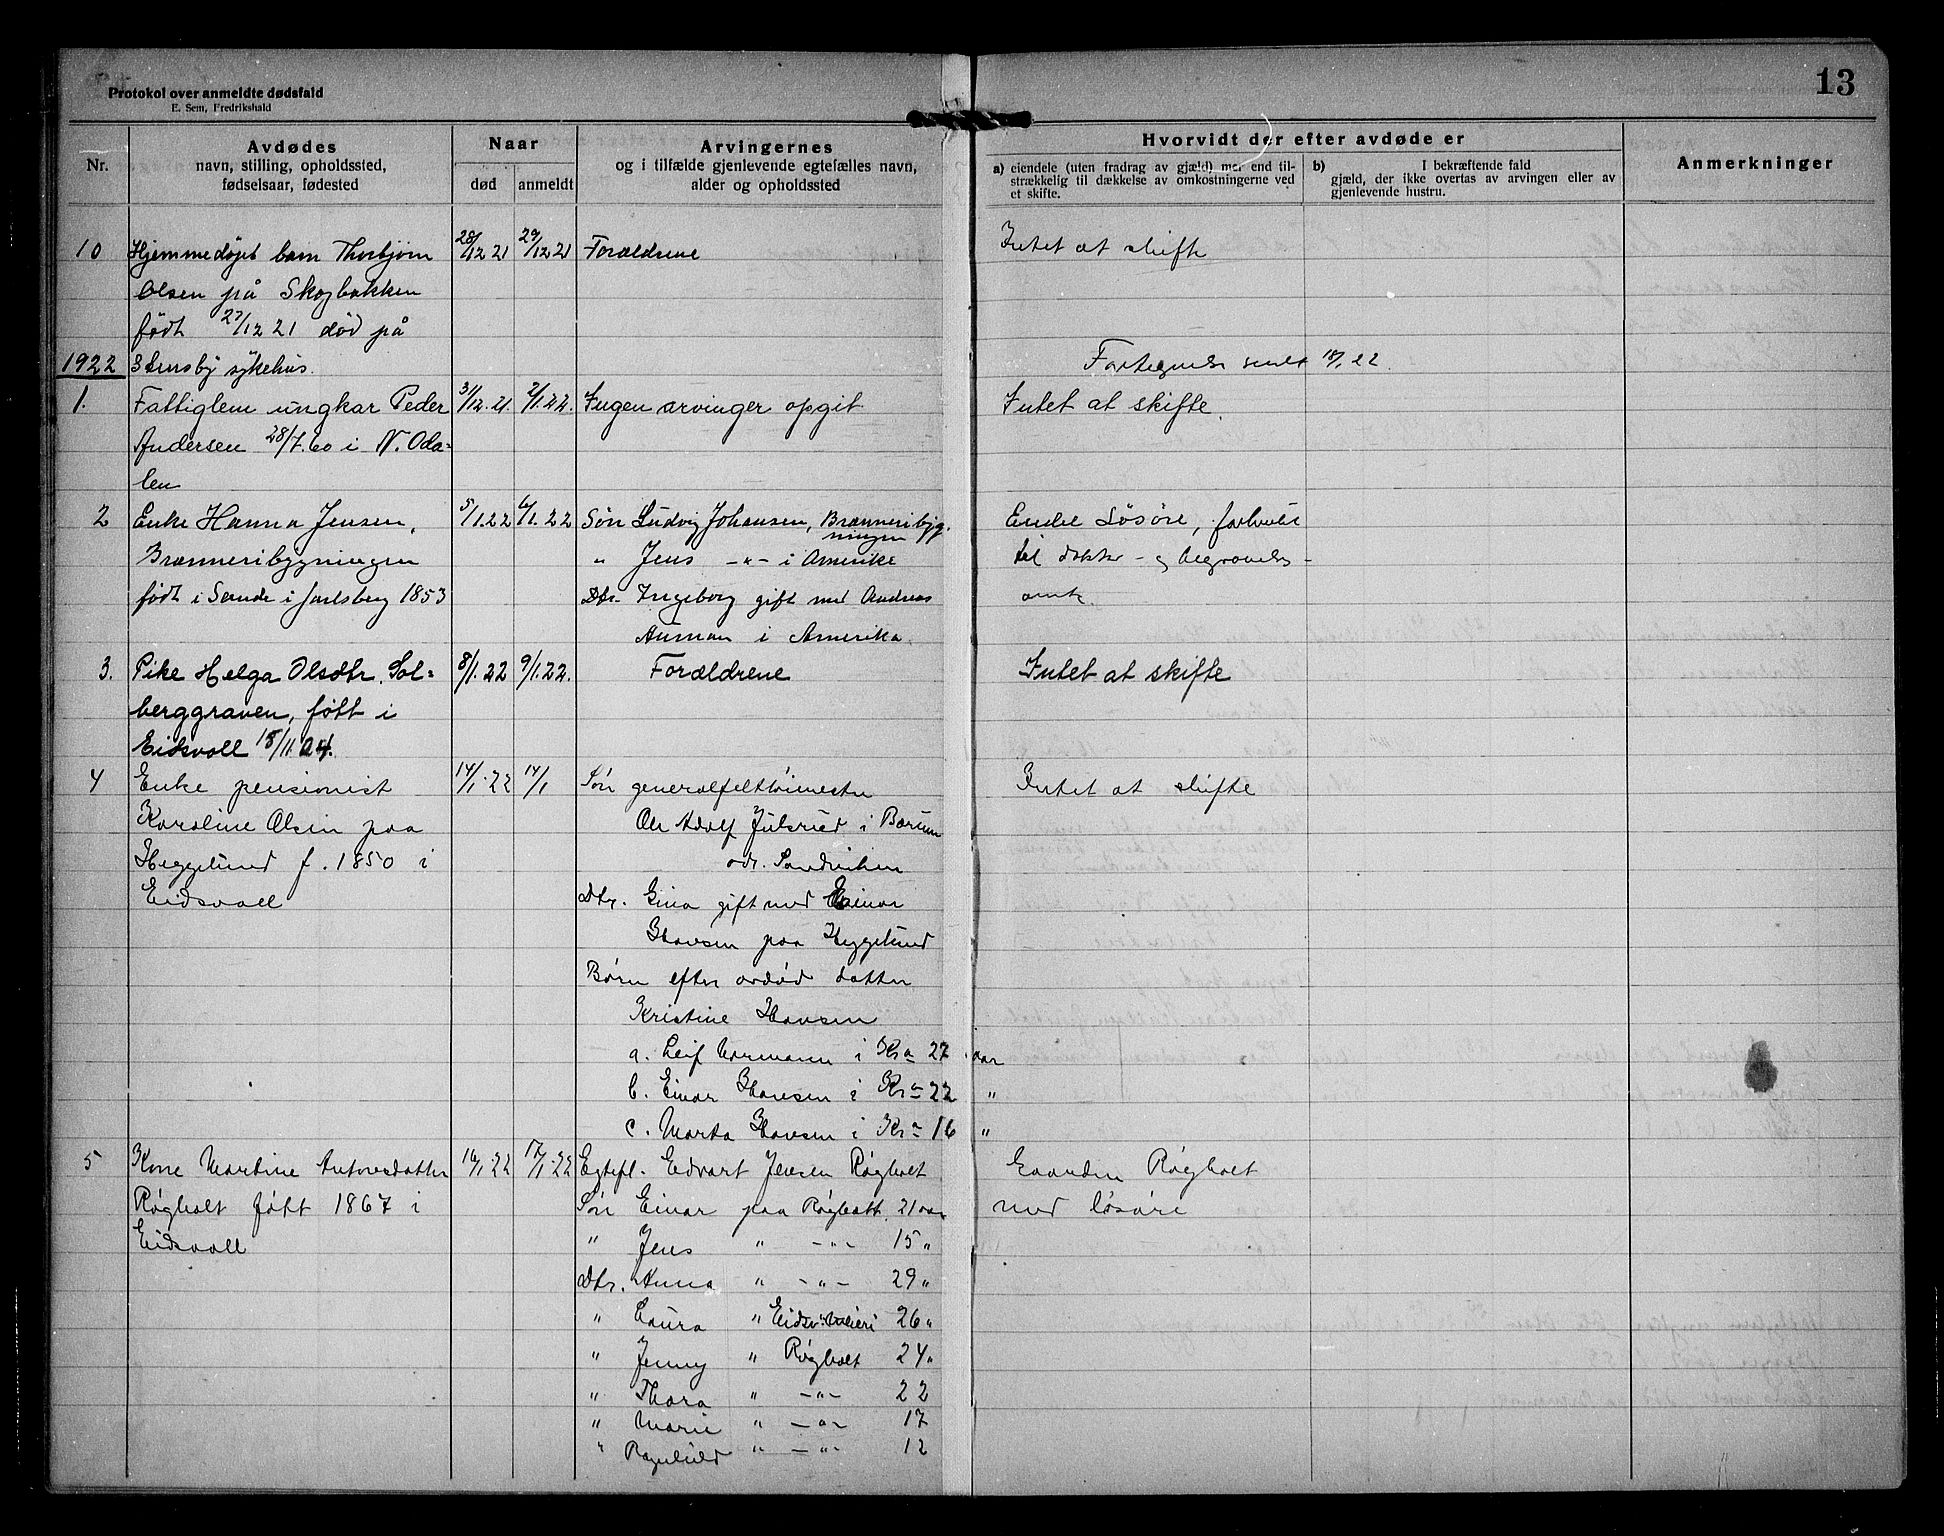 13
Protokol over anmeldte dødsfald
E. Sem, Fredrikshald
Nr.
Avdødes
navn, stilling, opholdssted,
fødselsaar, fødested
Naar
død
anmeldt
Arvingernes
og i tilfælde gjenlevende egtefælles navn,
alder og opholdssted
Hvorvidt der efter avdøde er
a) eiendele (uten fradrag av gjæld) mer end til-
strækkelig til dækkelse av omkostningerne ved
et skifte.
b) I bekræftende fald
gjæld, der ikke overtas av arvingen eller av
gjenlevende hustru.
Anmerkninger
10 Hjemmedøpt barn Thorbjørn 28/12 21 29/12 21 Forældrene Intet at skifte
Olsen på Skogbakken
født 27/12 21 død på
1922 Stensby sykehus. Fortegnelse sendt 18/1 22.
1. Fattiglem ungkar Peder 31/12.21. 2/1.22. Ingen arvinger opgit Intet at skifte.
Andersen 28/7.60 i N. Oda-
len
2 Enke Hanna Jensen, 5/1.22 6/1.22 Søn Ludvig Johansen, Brænneribyg- Endel løsøre,
ningen
Brænneribygningen " Jens -"- i Amerika til dokter- og begravelses-
født i Sande i Jarlsberg 1853 Dtr. Ingeborg gift med Andreas omk.
Auman i Amerika.
3. Pike Helga Olsdtr. Sol- 8/1.22 9/1.22. Forældrene Intet at skifte
berggraven, født i
Eidsvoll 18/11.04.
4 Enke pensionist 14/1.22 14/1 Søn generalfelttøimester Intet at skifte
Karoline Olsen paa Ole Adolf Julsrud i Bærum
Heggelund f. 1850 i adr. Sandviken
Eidsvoll Dtr. Gina gift med Einar
Hansen paa Heggelund
Børn efter avdød datter
Kristine Hansen
a. Leif Normann i Kr.a 27 aar
b. Einar Hansen i Kr.a 22 "
c. Marta Hansen i Kr.a 16 "
5 Kone Martine Antonsdatter 16/1.22 17/1.22 Egtef. Edvart Jensen Røgholt Gaarden Røgholt
Røgholt født 1867 i Søn Einar paa Røgholt 21 aar med løsøre
Eidsvoll " Jens " -"- 15 "
Dtr. Anna " -"- 29 "
" Laura " Eidsv. Meieri 26 "
" Jenny " Røgholt 24 "
" Thora " -"- 22
" Marie " -"- 17
" Ragnhild " -"- 12